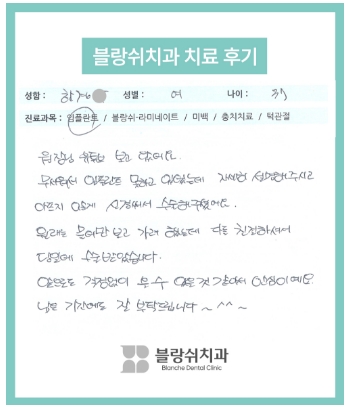 블랑쉬치과 치료 후기
성함 : 성별 : 여 나이 :
진료과목 : 임플란트 / 블랑쉬-라미네이트 / 미백 / 충치치료 / 턱관절
원장님 유튜브 보고 왔어요.
무서워서 임플란트 못하고 있었는데 자세히 설명해주시고
아프지 않게 신경써서 수술해주셨어요.
원래는 문의만 보고 가려 했는데 다들 친절하셔서
당일에 수술 받았습니다.
앞으로도 걱정없이 올 수 있을 것 같아서 안심이예요.
남은 기간에도 잘 부탁드립니다 ~ ^^ ~
블랑쉬치과
Blanche Dental Clinic